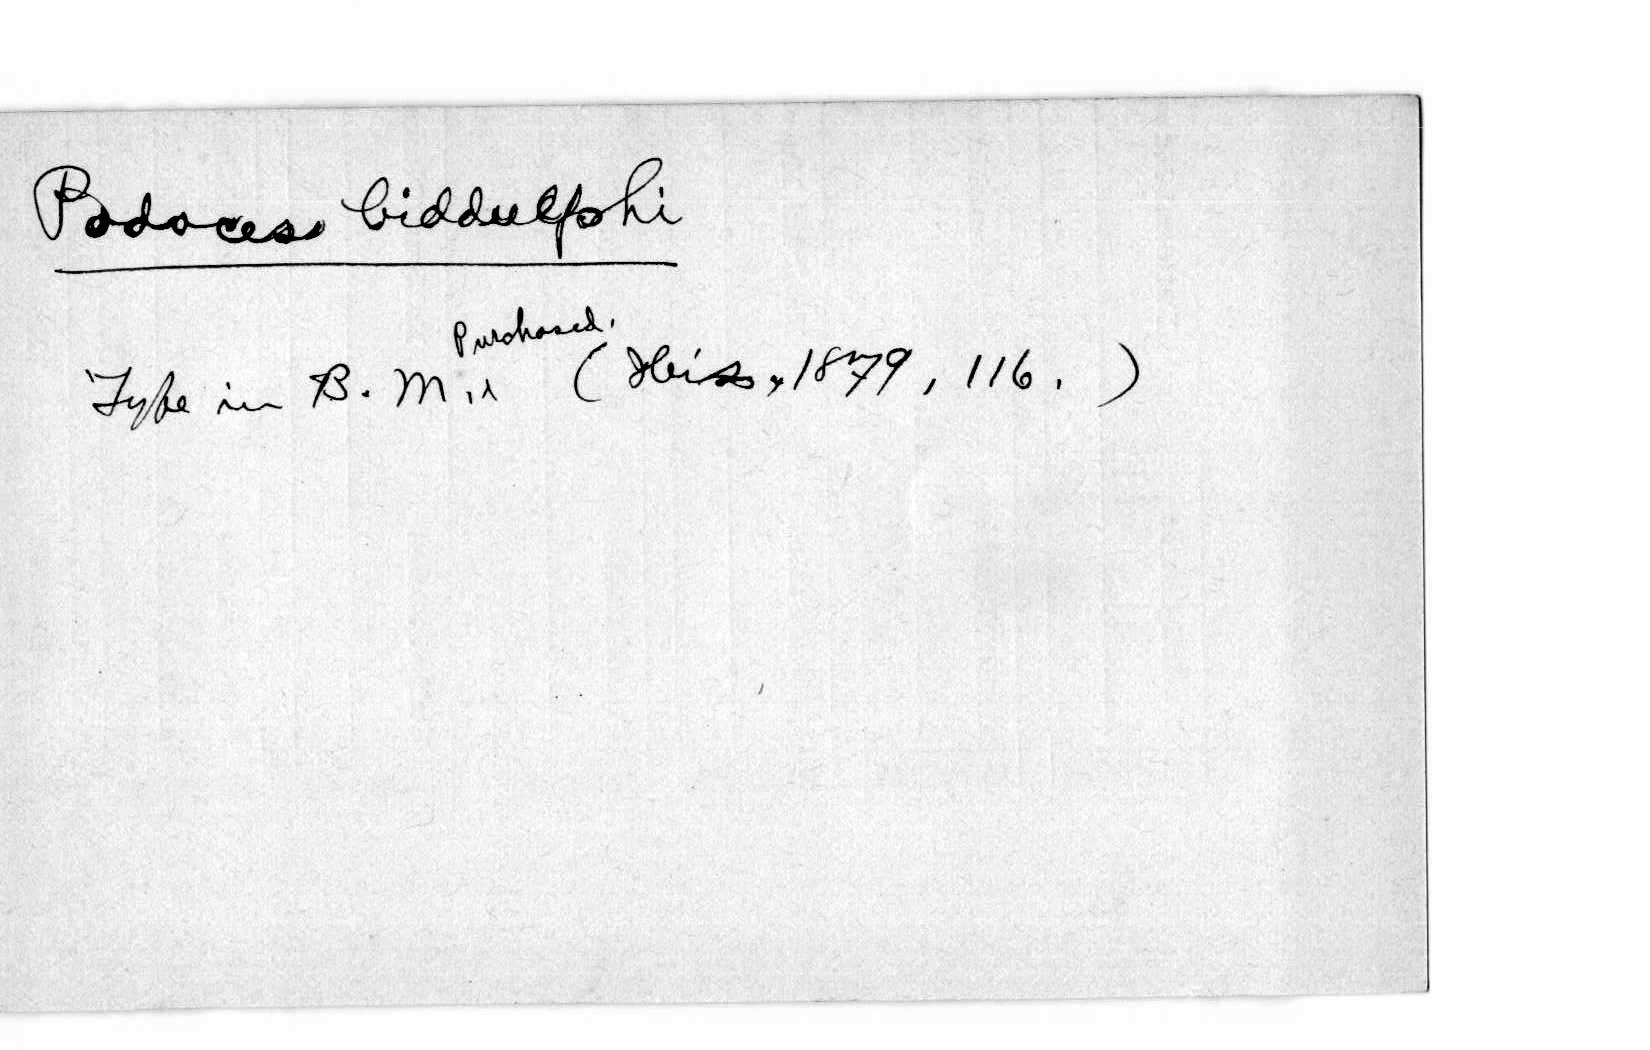 Podoces biddulphi
Purchased.
Type in B. M. (Ibis, 1879, 116.)